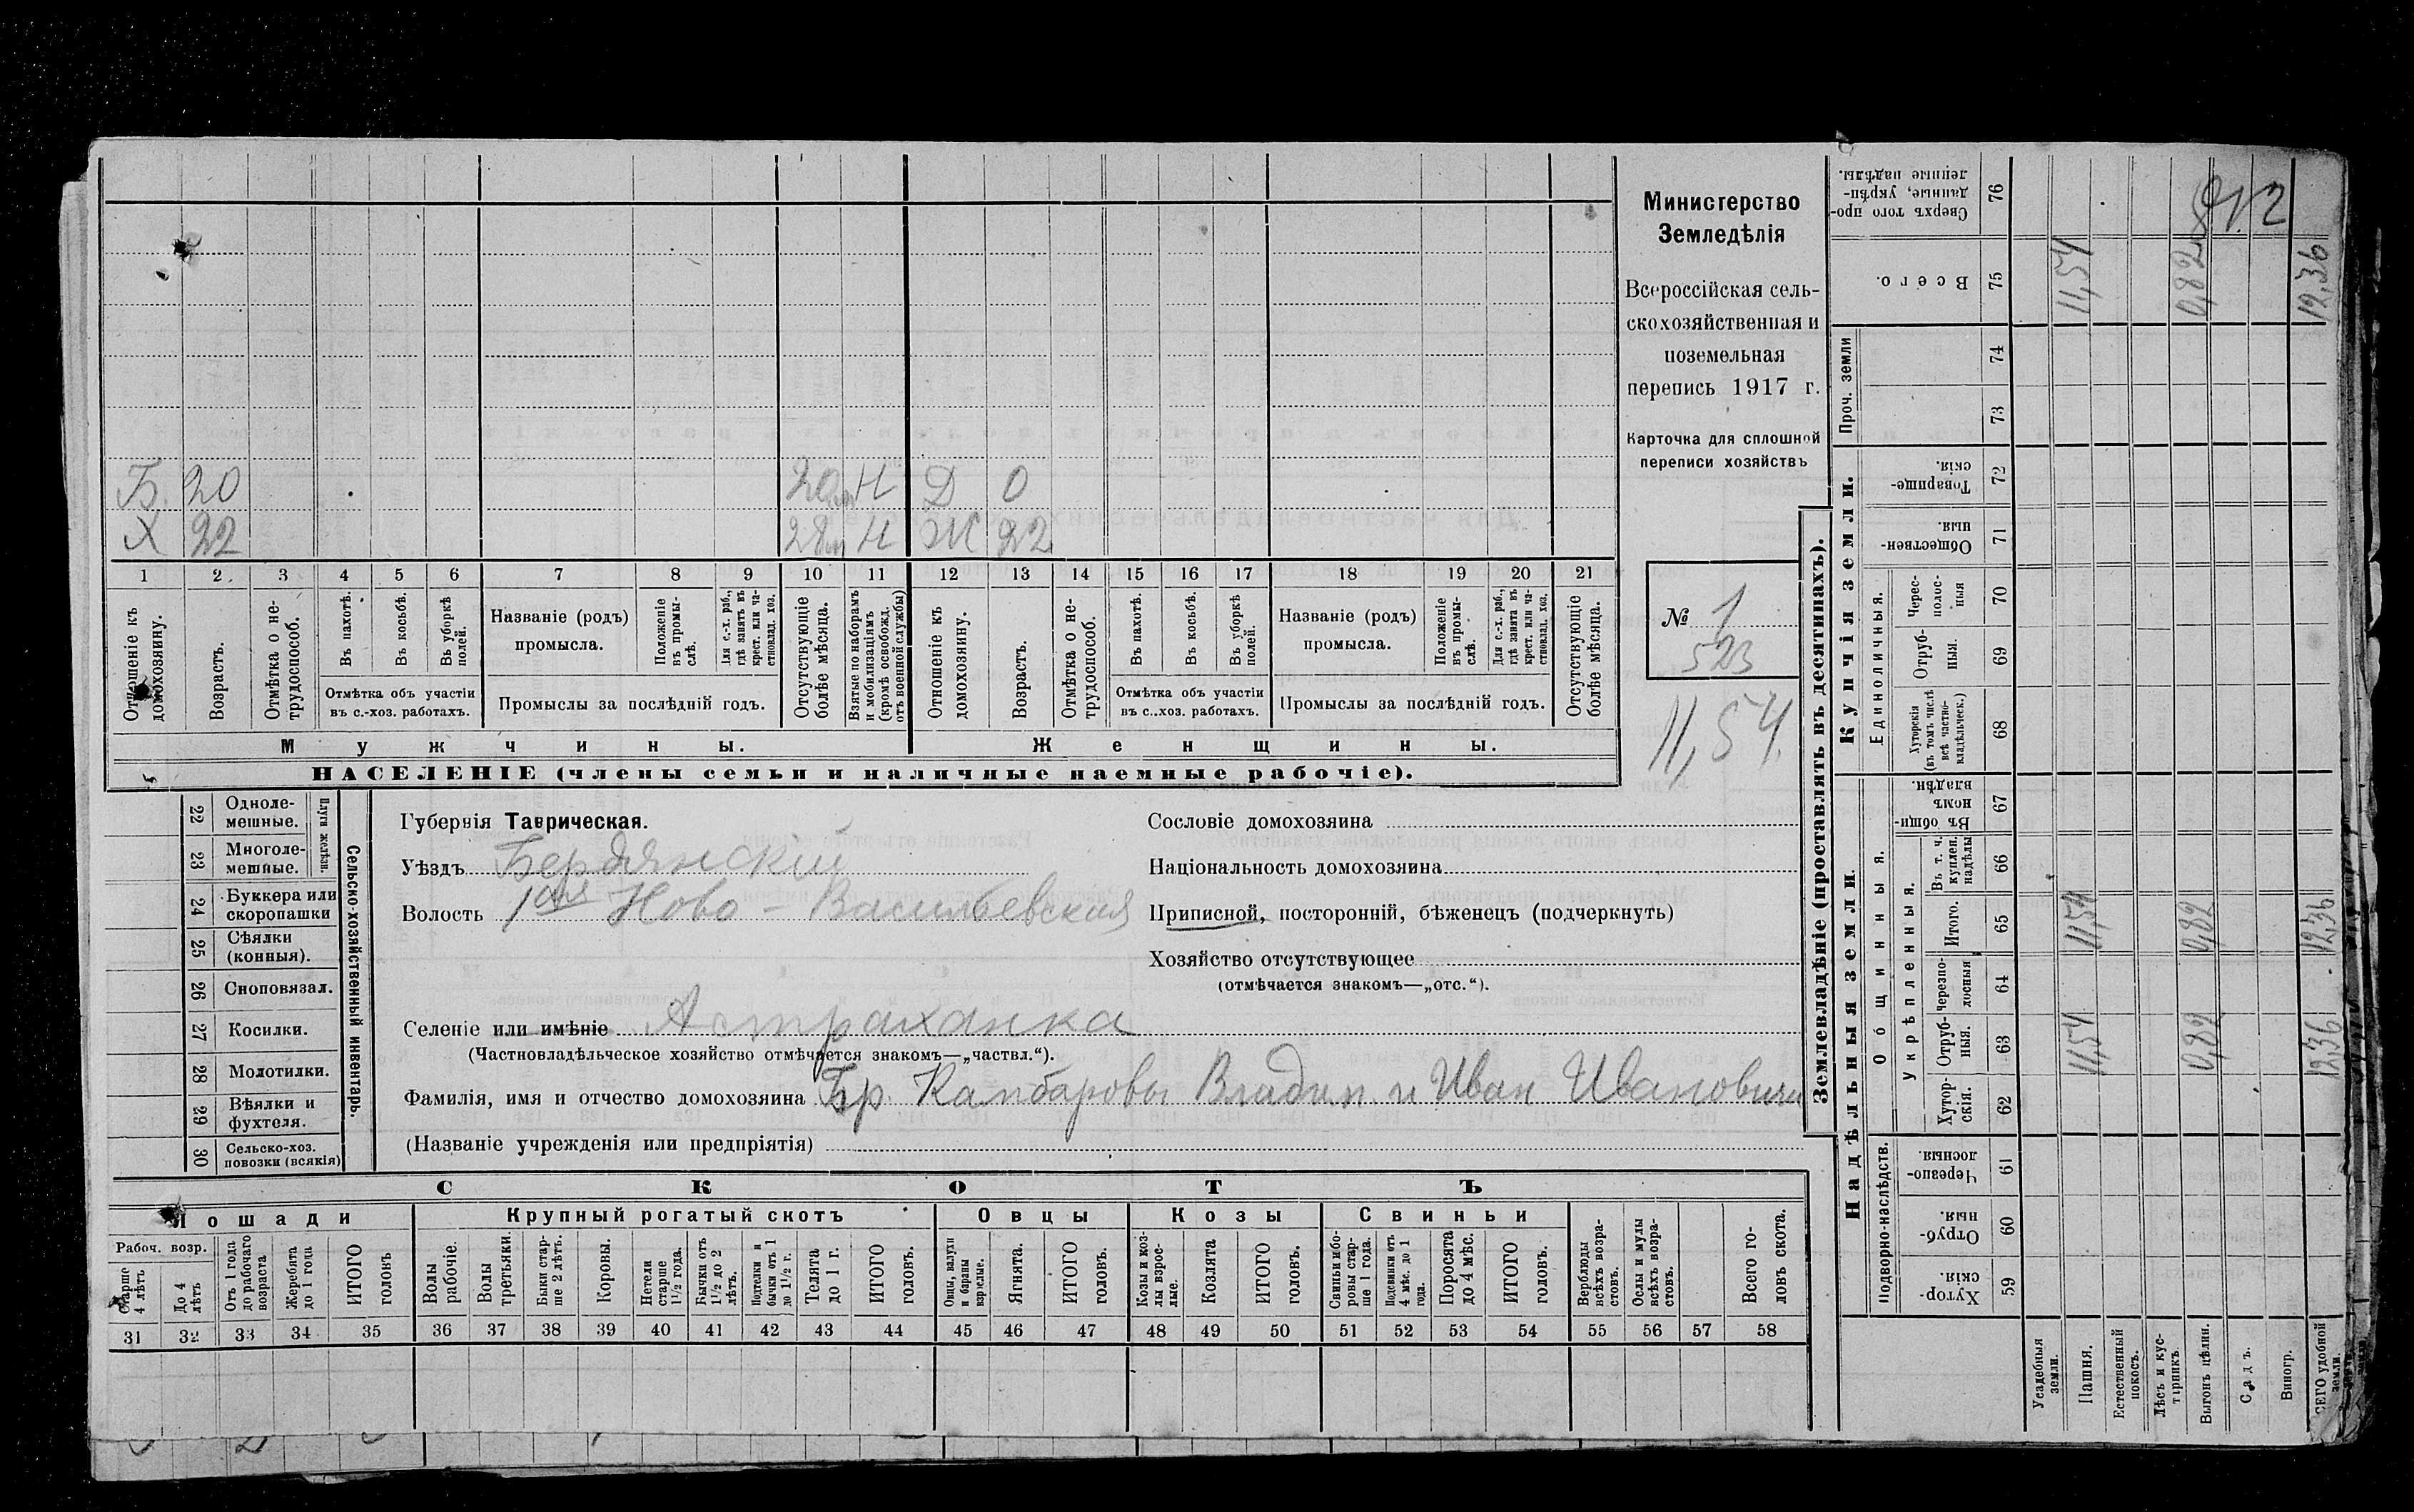 Министерство
Земледѣлія
Всероссійская сель-
скохозяйственная и
поземельная
перепись 1917 г.
Карточка для сплошной
переписи хозяйствъ
№ 1
523
11,54
Б. 20 20 Н Д 0
Х 22 28 Н Ж 22
1 2 3 4 5 6 7 8 9 10 11 12 13 14 15 16 17 18 19 20 21
Отношеніе къ домохозяину.
Возрастъ.
Отмѣтка о не-трудоспособ.
Въ пахотѣ.
Въ косьбѣ.
Въ уборкѣ полей.
Отмѣтка объ участіи
въ с.-хоз. работахъ.
Названіе (родъ)
промысла.
Положеніе въ промы-слѣ.
Для с.-х. раб., гдѣ занятъ въ крест. или ча-стновлад. хоз.
Промыслы за послѣдній годъ.
Отсутствующіе болѣе мѣсяца.
Взятые по наборамъ и мобилизаціямъ (кромѣ освобожд. отъ военной службы)
Отношеніе къ домохозяину.
Возрастъ.
Отмѣтка о не-трудоспособ.
Въ пахотѣ.
Въ косьбѣ.
Въ уборкѣ полей.
Отмѣтка объ участіи
въ с.-хоз. работахъ.
Названіе (родъ)
промысла.
Положеніе въ промы-слѣ.
Для с.-х. раб., гдѣ занята въ крест. или ча-стновлад. хоз.
Промыслы за послѣдній годъ.
Отсутствующіе болѣе мѣсяца.
Мужчины.
Женщины.
НАСЕЛЕНІЕ (члены семьи и наличные наемные рабочіе).
22 Одноле-мешные.
23 Многоле-мешные.
Плуги желѣзн.
24 Буккера или скоропашки
25 Сѣялки (конныя).
26 Сноповязал.
27 Косилки.
28 Молотилки.
29 Вѣялки и фухтеля.
30 Сельско-хоз. повозки (всякія)
Сельско-хозяйственный инвентарь.
Губернія Таврическая.
Уѣздъ Бердянскій
Волость 1ая Ново-Васильевская
Селеніе или имѣніе Астраханка
(Частновладѣльческое хозяйство отмѣчается знакомъ—„частвл.“).
Фамилія, имя и отчество домохозяина Бр. Капбаровы Владим. и Иван Ивановичи
(Названіе учрежденія или предпріятія)
Сословіе домохозяина
Національность домохозяина
Приписной, посторонній, бѣженецъ (подчеркнуть)
Хозяйство отсутствующее
(отмѣчается знакомъ—„отс.“).
СКОТЪ
Лошади
Рабоч. возр.
Старше 4 лѣтъ
До 4 лѣтъ
Отъ 1 года до рабочаго возраста
Жеребята до 1 года
ИТОГО головъ
Крупный рогатый скотъ
Волы рабочіе.
Волы третьяки.
Быки стар-ше 2 лѣтъ.
Коровы.
Нетели старше 1½ года.
Бычки отъ 1½ до 2 лѣтъ.
Подтелки и бычки отъ 1 до 1½ г.
Телята до 1 г.
ИТОГО головъ.
Овцы
Овцы, валухи и бараны взрослые.
Ягнята.
ИТОГО головъ.
Козы
Козы и коз-лы взрос-лые.
Козлята
ИТОГО головъ.
Свиньи
Свиньи и бо-ровы стар-ше 1 года.
Подсвинки отъ 4 мѣс. до 1 года.
Поросята до 4 мѣс.
ИТОГО головъ.
Верблюды всѣхъ возра-стовъ.
Ослы и мулы всѣхъ возра-стовъ.
Всего го-ловъ скота.
31 32 33 34 35 36 37 38 39 40 41 42 43 44 45 46 47 48 49 50 51 52 53 54 55 56 57 58
Землевладѣніе (проставлять въ десятинахъ).
Надѣльныя земли.
Подворно-наслѣдств.
Хутор-скія. 59
Отруб-ныя. 60
Черезпо-лосныя. 61
Общинныя.
Укрѣпленныя.
Хутор-скія. 62
Отруб-ныя. 63
Черезпо-лосныя 64
Итого. 65
Въ т. ч. куплен. надѣлы 66
Въ общин-номъ владѣн. 67
Купчія земли.
Единоличныя.
Хуторскія (въ томъ числѣ всѣ частно-владѣльческ.) 68
Отруб-ныя. 69
Черес-полос-ныя 70
Обществен-ныя. 71
Товарище-скія. 72
Проч. земли
73
74
Всего. 75
Сверхъ того про-данные, укрѣп-ленные надѣлы. 76
Усадебныя земли.
Пашня. 11,54 11,54 11,54
Естественный покосъ.
Лѣсъ и кус-тарникъ.
Выгонъ цѣлин. 0,82 0,82 0,82
Садъ.
Виногр.
ВСЕГО удобной земли. 12,36 12,36 12,36